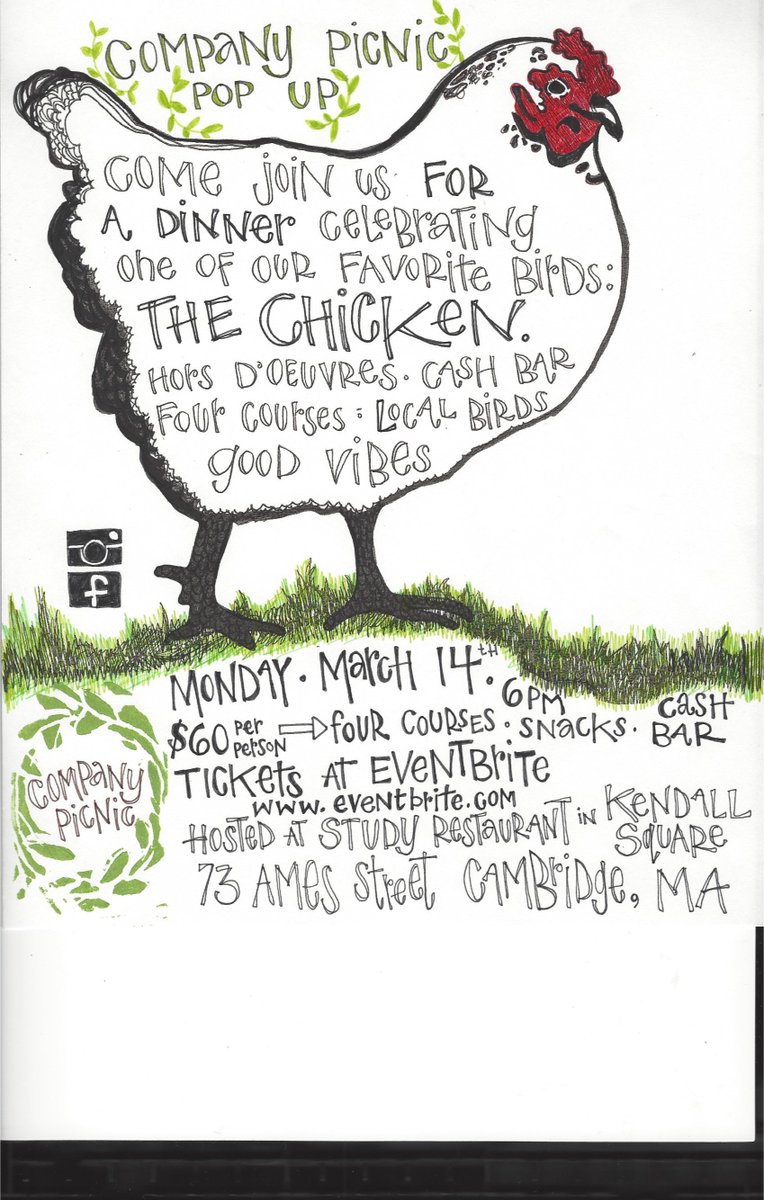 COMPANY PICNIC
POP UP
COME JOIN US FOR
A DINNER CELEBRATING
ONE OF OUR FAVORITE BIRDS:
THE CHICKEN.
HORS D'OEUVRES · CASH BAR
FOUR COURSES : LOCAL BIRDS
GOOD VIBES
f
MONDAY · MARCH 14TH · 6PM
$60 per person ⇨ FOUR COURSES · SNACKS · CASH BAR
TICKETS AT EVENTBRITE
www.eventbrite.com
HOSTED AT STUDY RESTAURANT in KENDALL SQUARE
73 AMES STREET CAMBRIDGE, MA
COMPANY
PICNIC